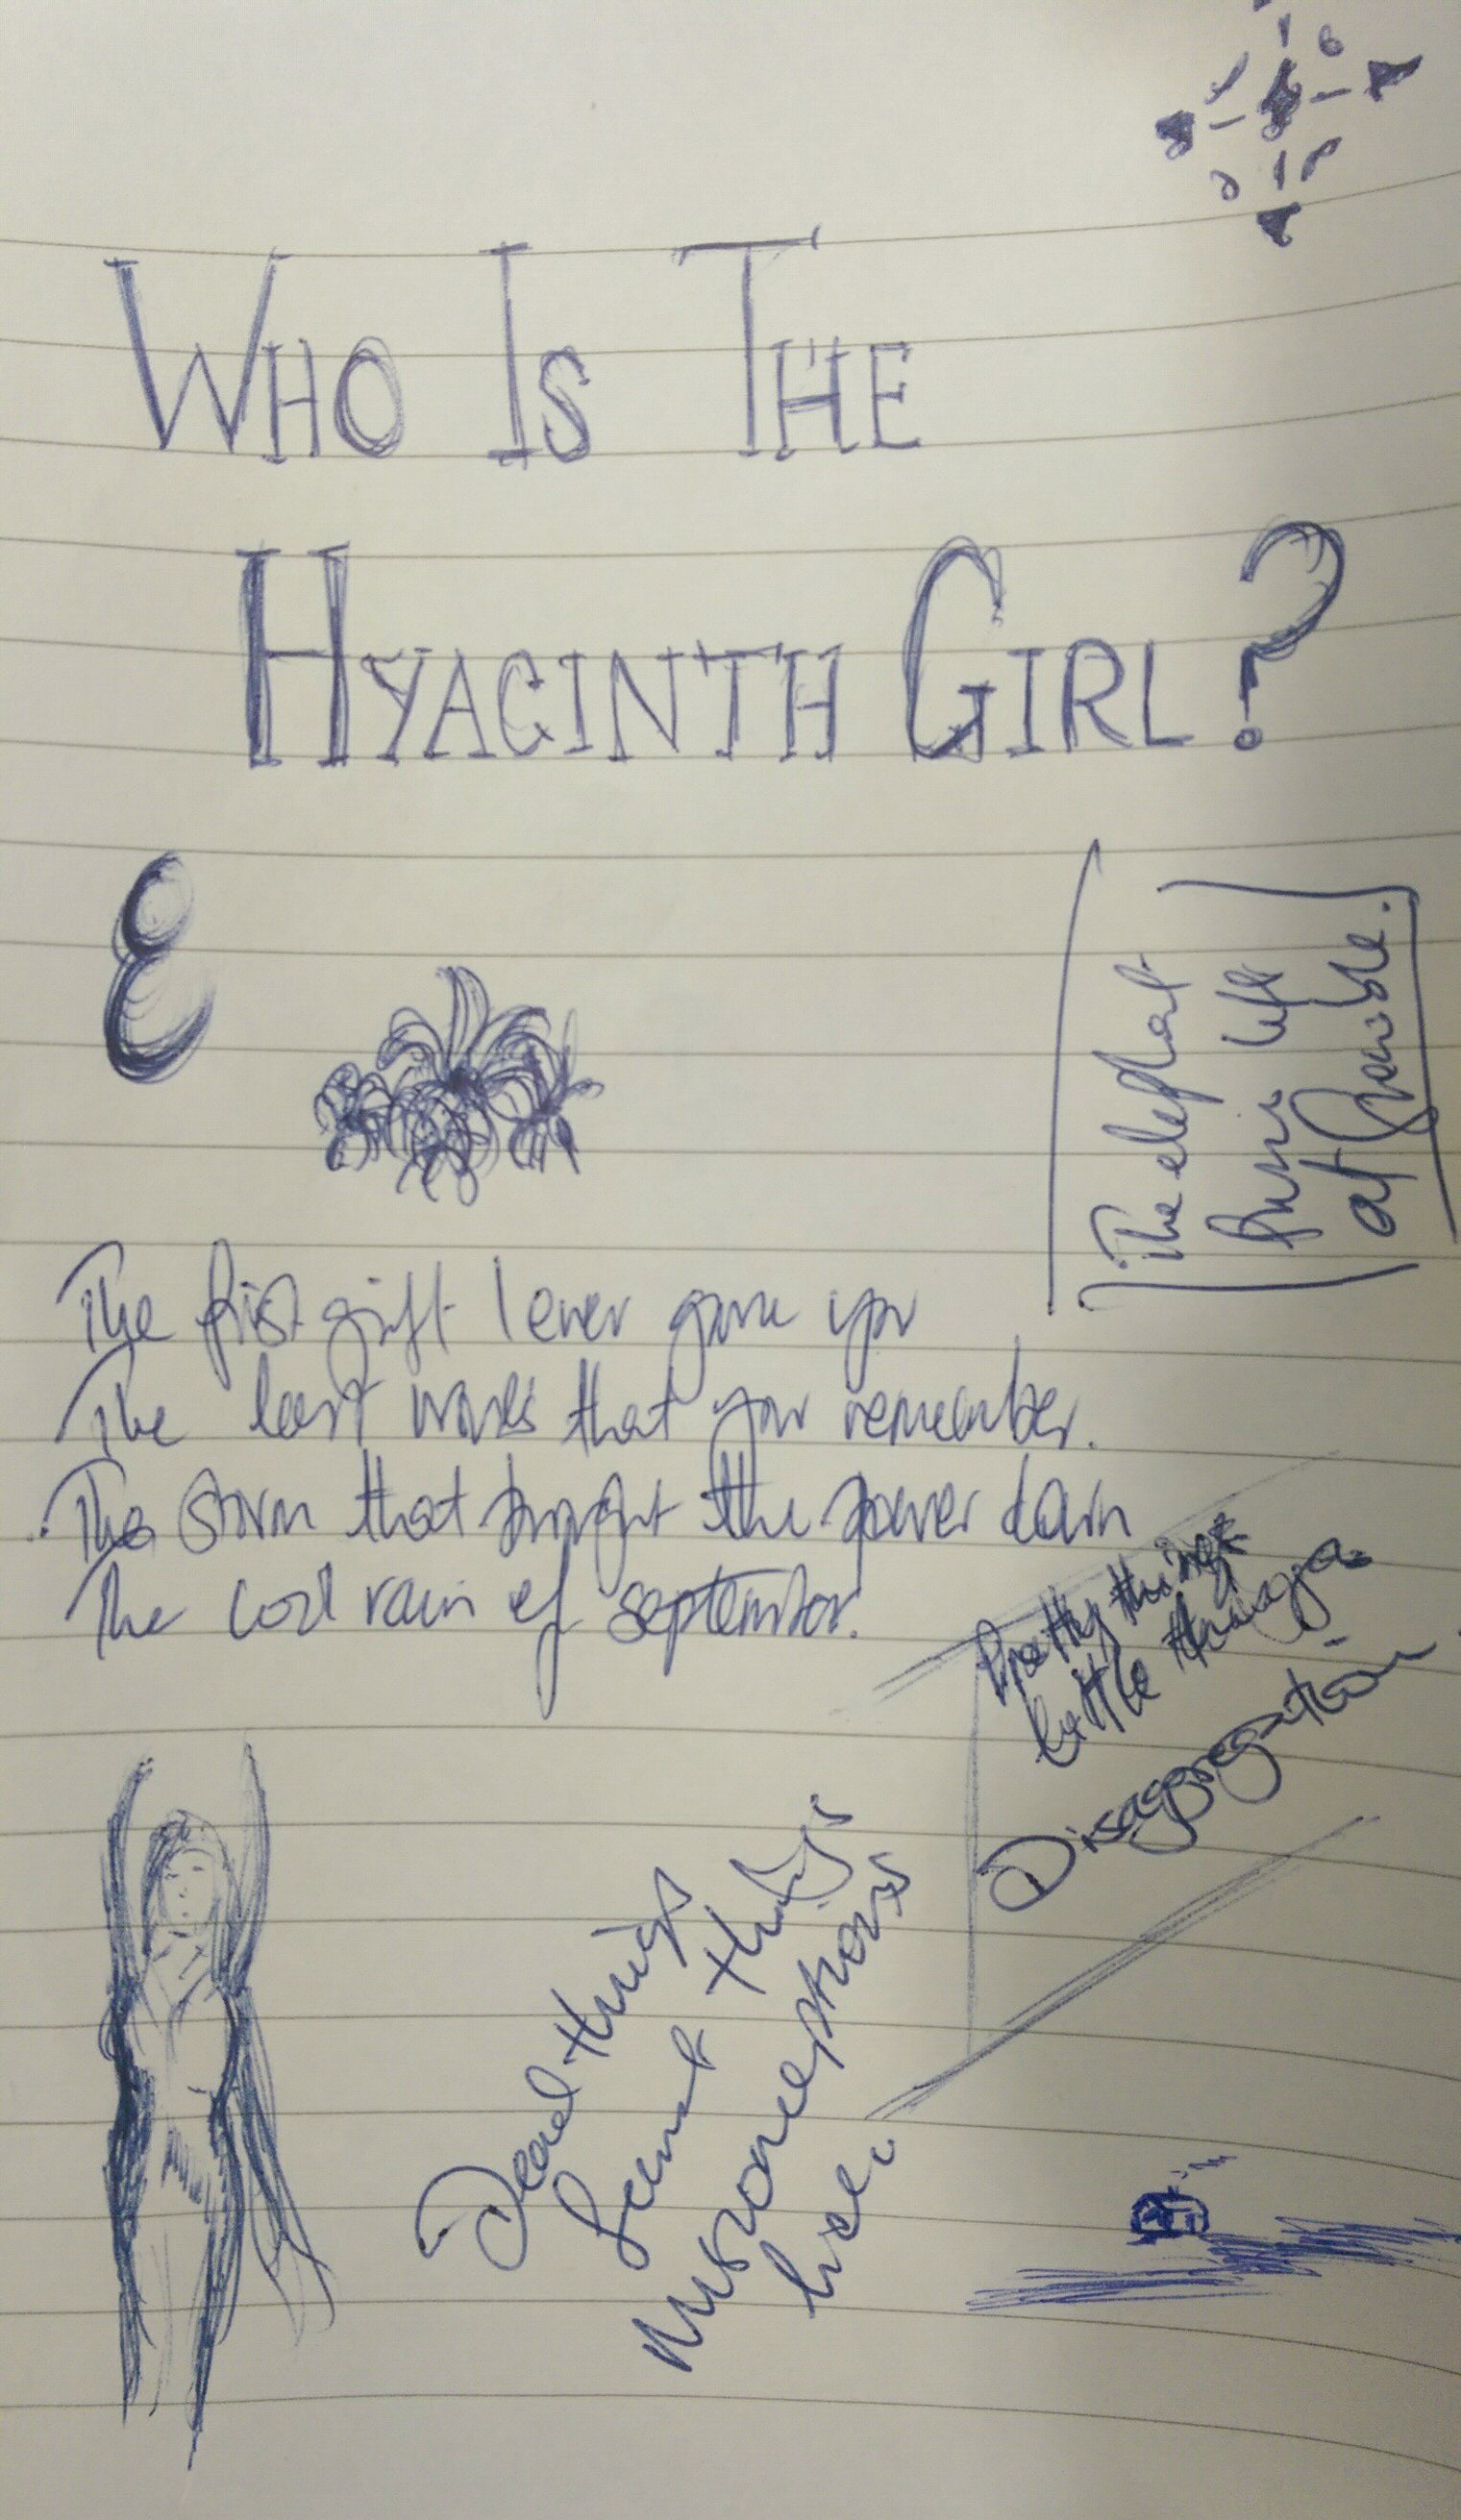 WHO IS THE
HYACINTH GIRL?
The elephant
turns left
at
The first gift I ever gave you
The last words that you remember.
The storm that brought the power down
The cold rain of september.
Pretty things
little things
Disaggregation
Dead things
things
misconceptions